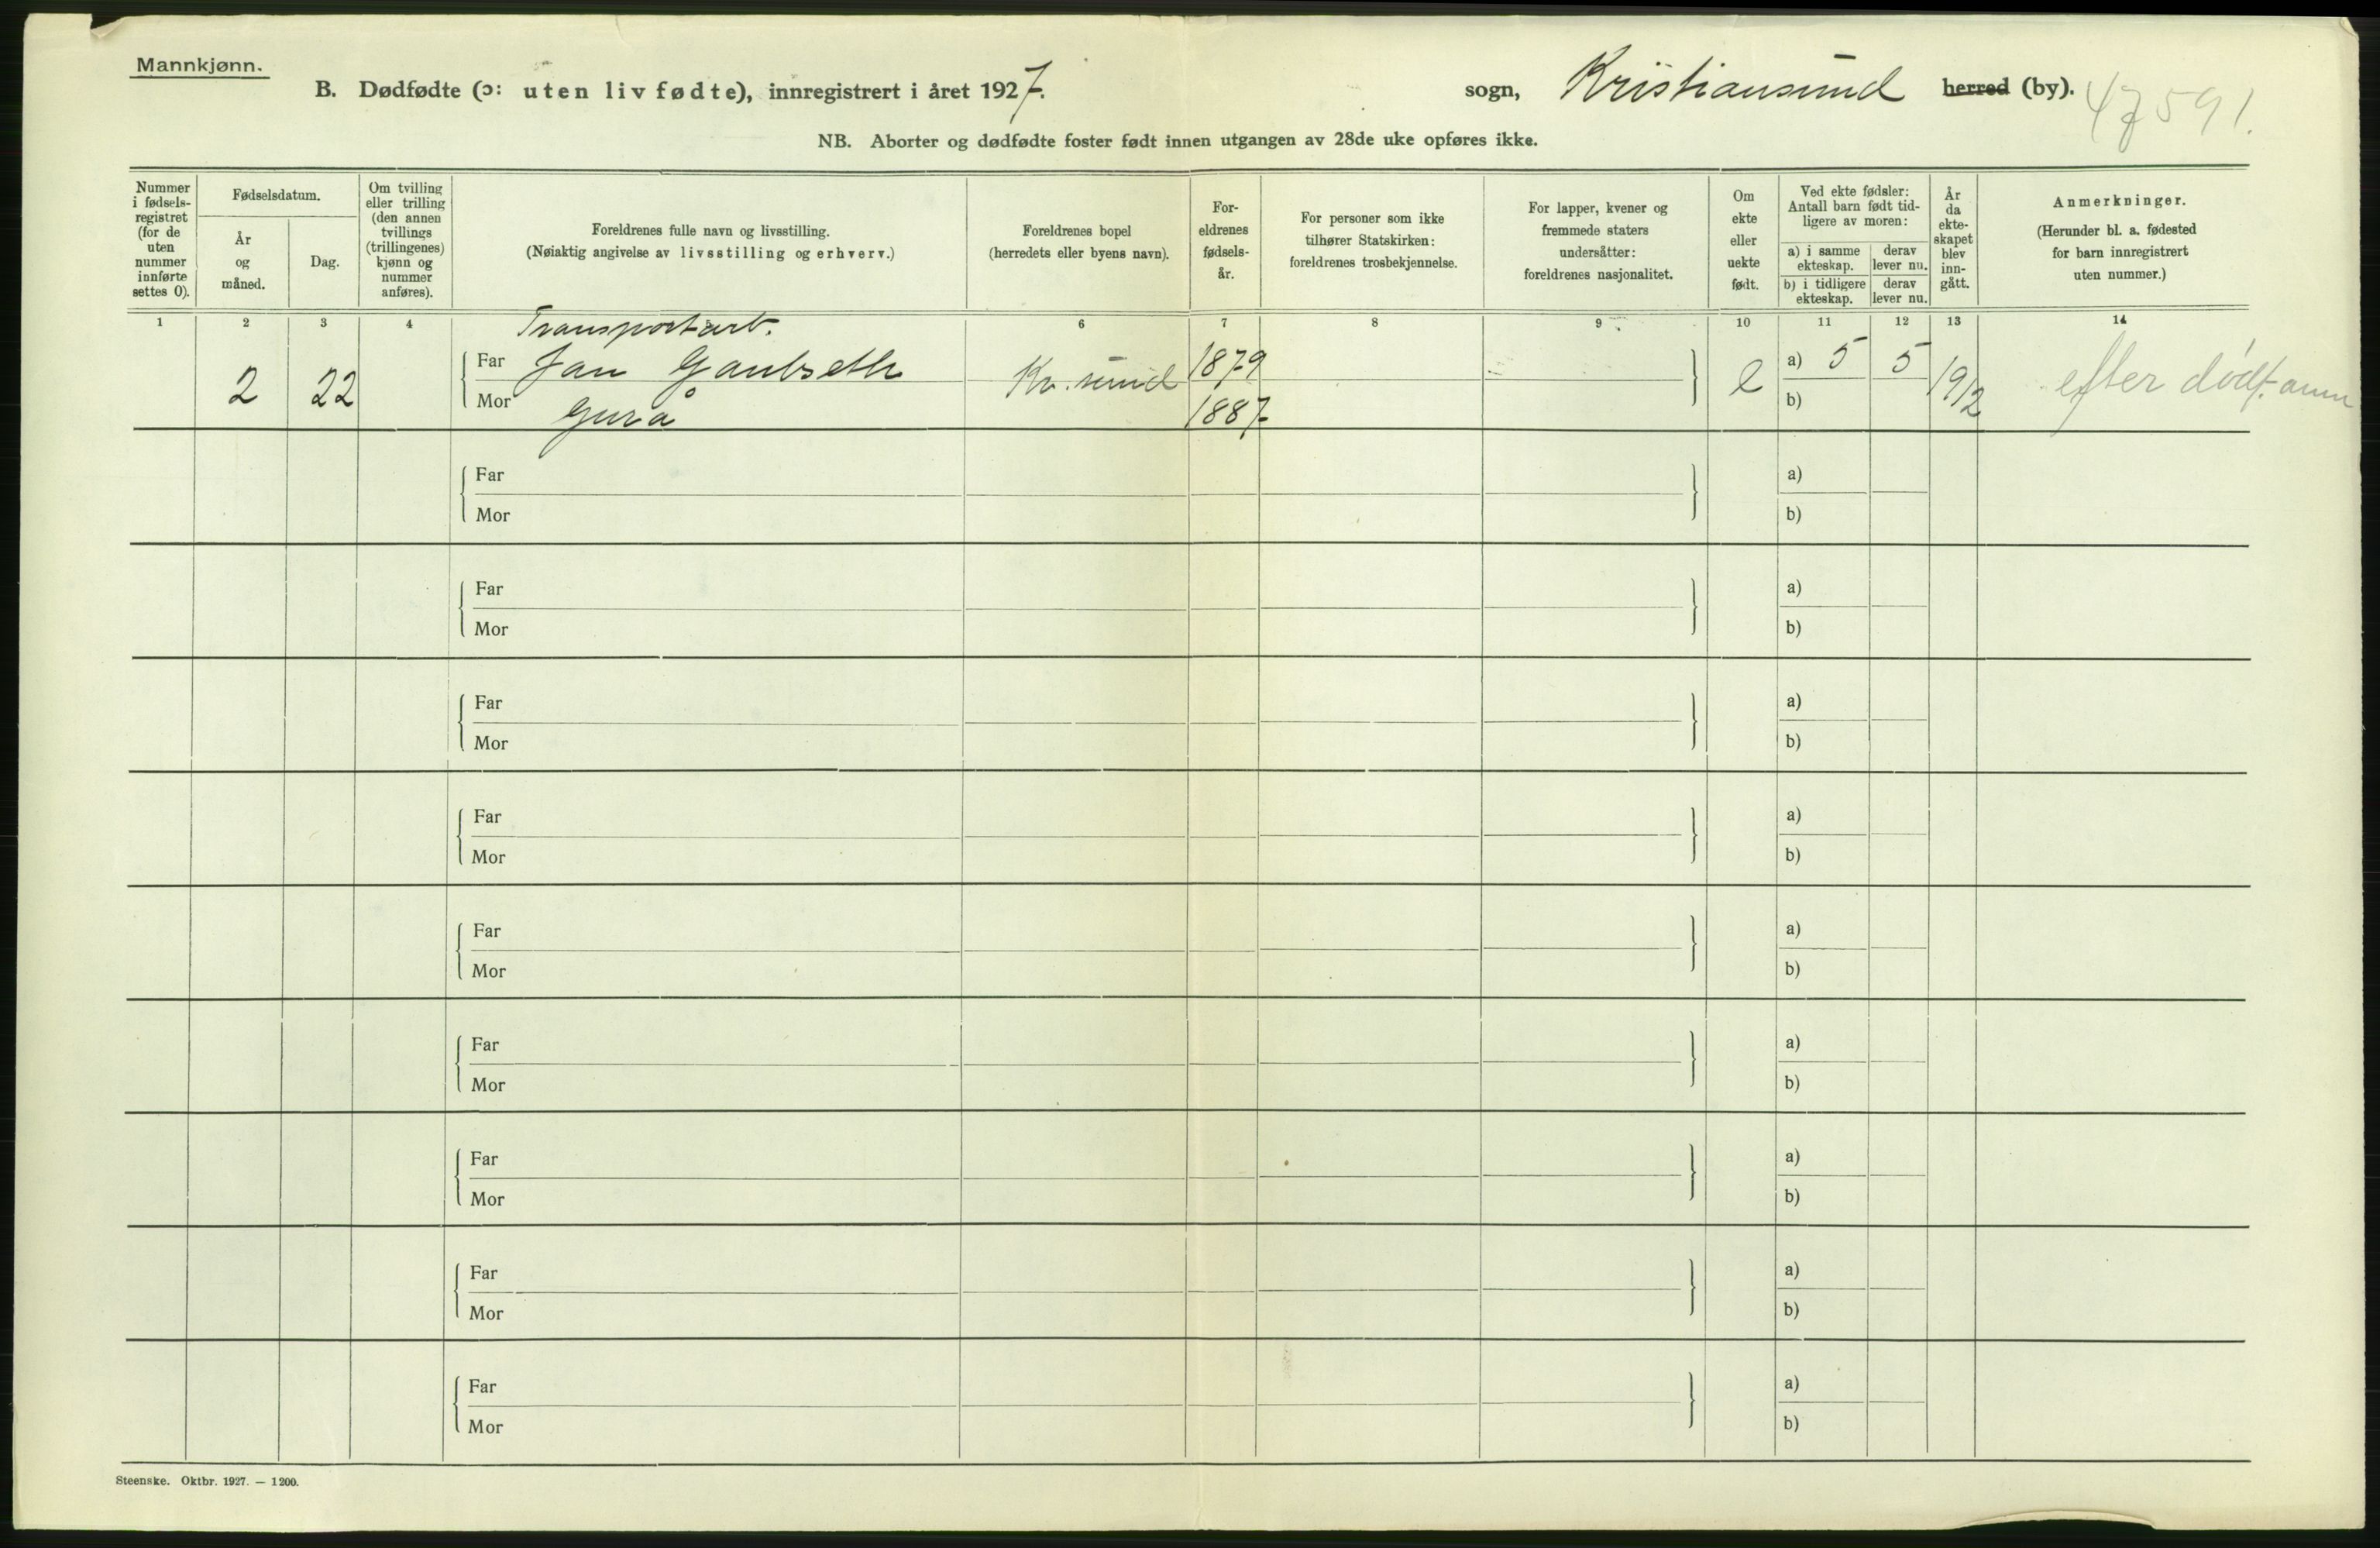 Mannkjønn.
B. Dødfødte (ɔ: uten liv fødte), innregistrert i året 1927.
sogn, Kristiansund herred (by).
47591.
NB. Aborter og dødfødte foster født innen utgangen av 28de uke opføres ikke.
Nummer i fødsels-registret (for de uten nummer innførte settes 0).
Fødselsdatum.
År og måned.
Dag.
Om tvilling eller trilling (den annen tvillings (trillingenes) kjønn og nummer anføres).
Foreldrenes fulle navn og livsstilling.
(Nøiaktig angivelse av livsstilling og erhverv.)
Foreldrenes bopel
(herredets eller byens navn).
For-eldrenes fødsels-år.
For personer som ikke tilhører Statskirken: foreldrenes trosbekjennelse.
For lapper, kvener og fremmede staters undersåtter: foreldrenes nasjonalitet.
Om ekte eller uekte født.
Ved ekte fødsler: Antall barn født tid-ligere av moren:
a) i samme ekteskap.
derav lever nu.
b) i tidligere ekteskap.
derav lever nu.
År da ekte-skapet blev inn-gått.
Anmerkninger.
(Herunder bl. a. fødested for barn innregistrert uten nummer.)
1 2 3 4 6 7 8 9 10 11 12 13 14
Transportarb.
Far Jan Gaulseth 1879 a) 5 5
2 22 Kr. sund e 1912 efter dødf. anm
Mor Gurå 1887 b)
Far a)
Mor b)
Far a)
Mor b)
Far a)
Mor b)
Far a)
Mor b)
Far a)
Mor b)
Far a)
Mor b)
Far a)
Mor b)
Far a)
Mor b)
Far a)
Mor b)
Steenske. Oktbr. 1927. — 1200.